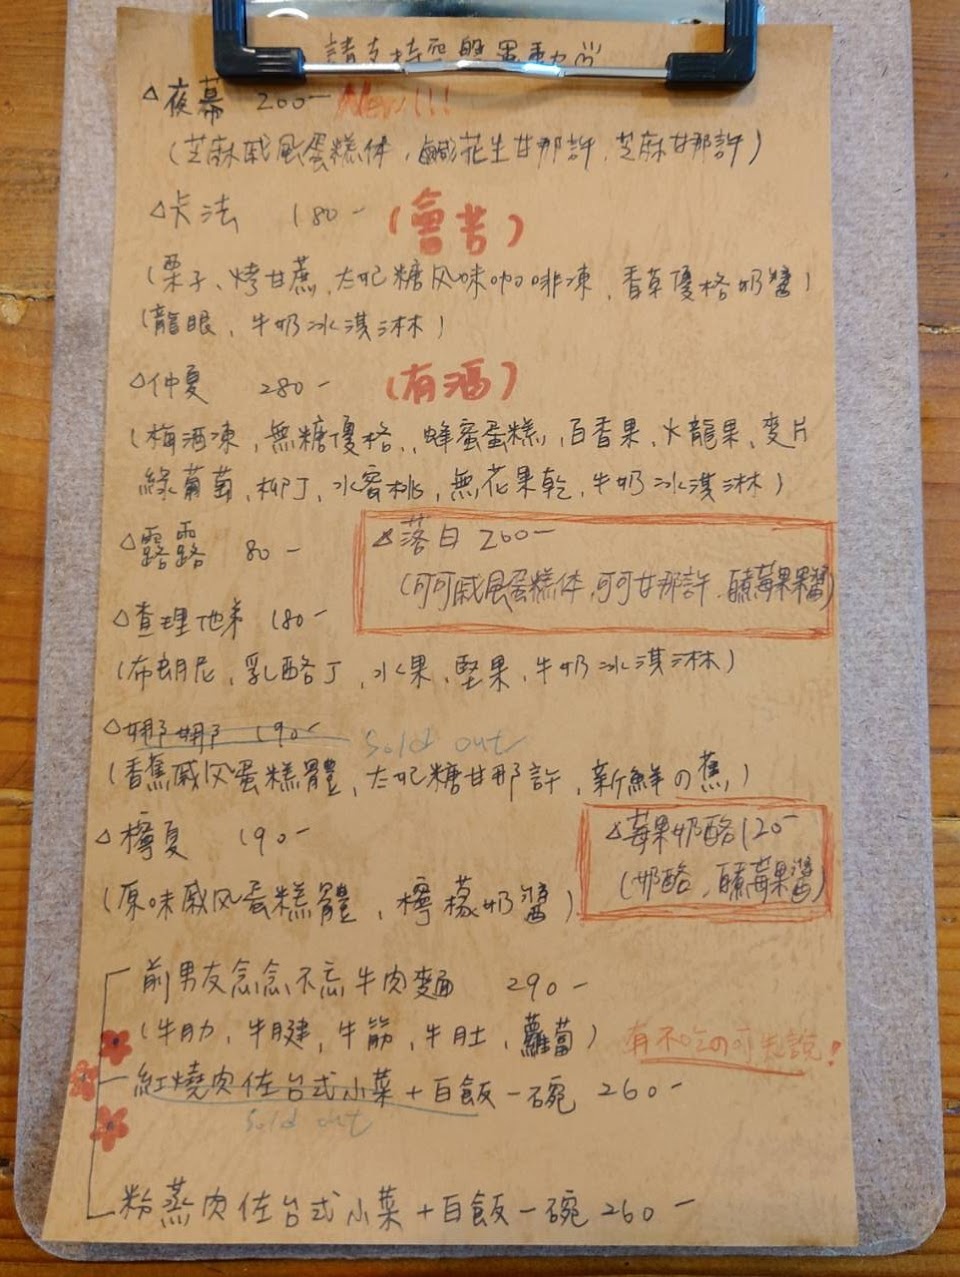 請支持
△夜幕 200- New!!!
(芝麻戚風蛋糕体,鹹花生甘那許,芝麻甘那許)
△卡法 180- (會苦)
(栗子、烤甘蔗,太妃糖风味咖啡凍,香草優格奶醬)
(龍眼、牛奶冰淇淋)
△仲夏 280- (有酒)
(梅酒凍,無糖優格,蜂蜜蛋糕,百香果,火龍果,麥片
綠葡萄,柳丁,水蜜桃,無花果乾,牛奶冰淇淋)
△露露 80-
△落日 260-
(可可戚風蛋糕体,可可甘那許,醋莓果果醬)
△查理地弟 180-
(布朗尼,乳酪丁,水果,堅果,牛奶冰淇淋)
△娜娜 190- Sold out
(香蕉戚风蛋糕體,太妃糖甘那許,新鮮の蕉)
△檸夏 190-
(原味戚风蛋糕體,檸檬奶醬)
△莓果奶酪120-
(奶酪,莓果醬)
前男友念念不忘牛肉麵 290-
(牛肋,牛腱,牛筋,牛肚,蘿蔔) 有不吃の可先說!
紅燒肉佐台式小菜+白飯一碗 260-
Sold out
粉蒸肉佐台式小菜+白飯一碗 260-